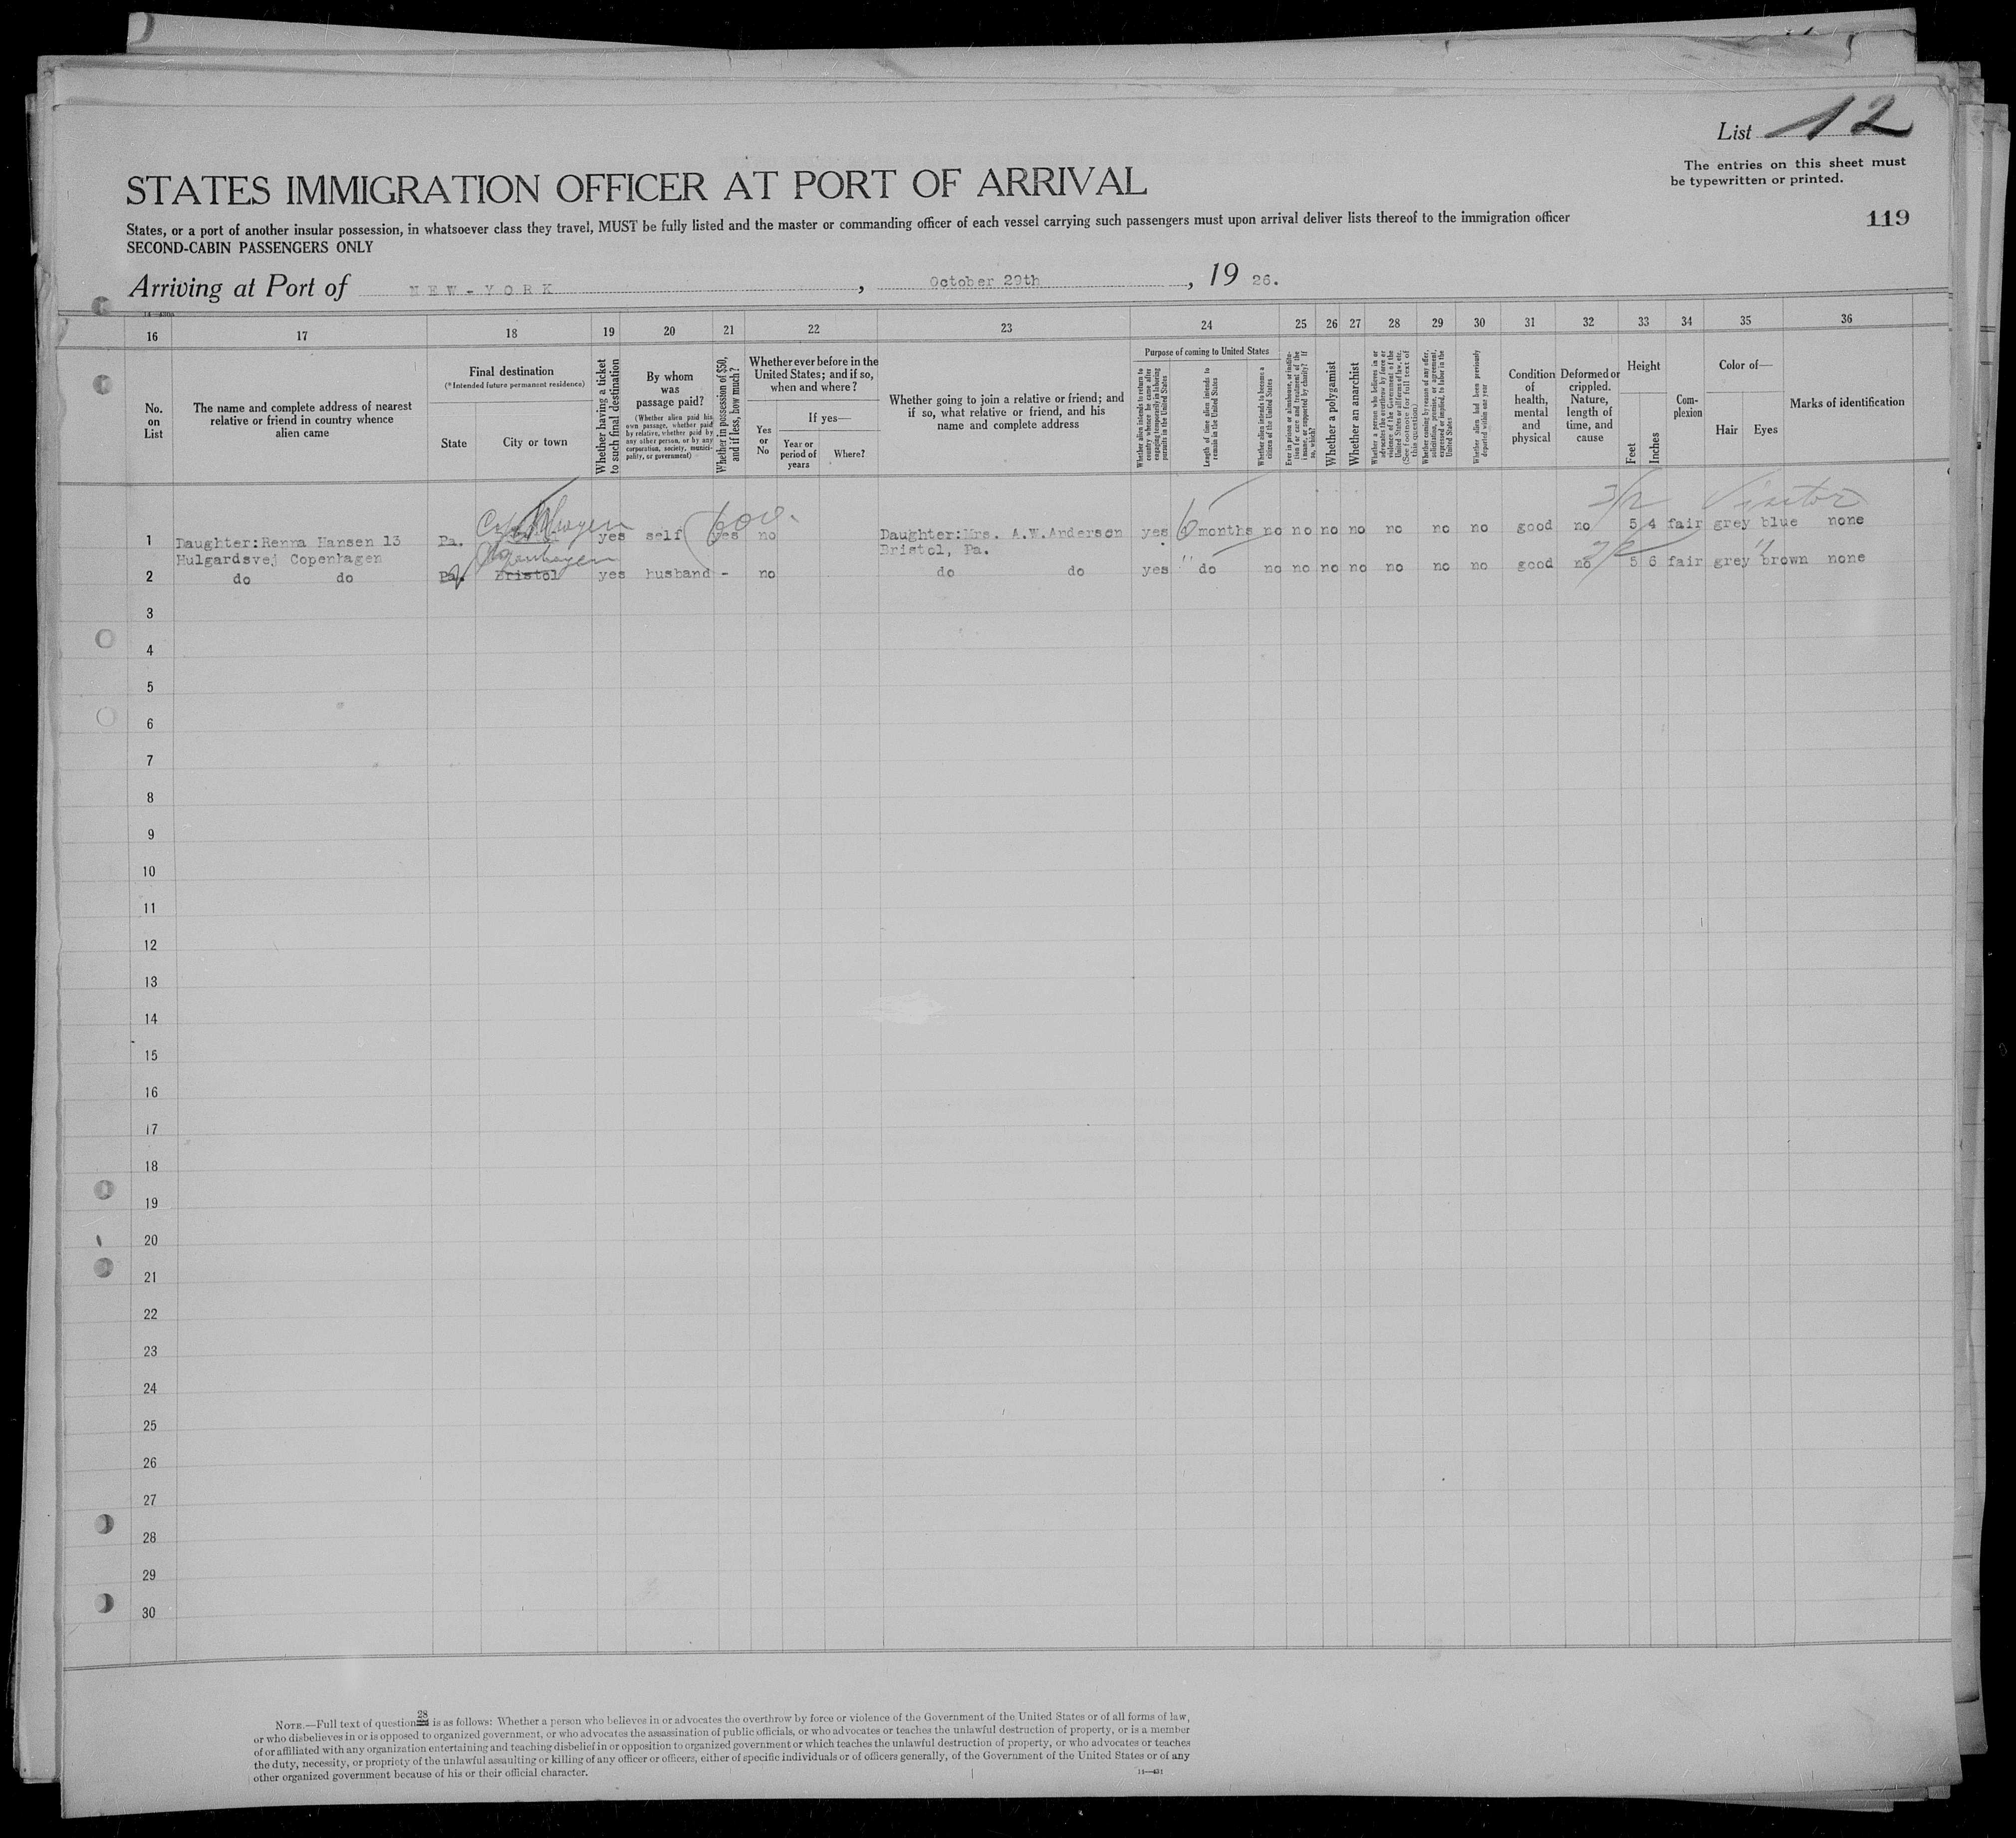 List 12
The entries on this sheet must
be typewritten or printed.
STATES IMMIGRATION OFFICER AT PORT OF ARRIVAL
119
States, or a port of another insular possession, in whatsoever class they travel, MUST be fully listed and the master or commanding officer of each vessel carrying such passengers must upon arrival deliver lists thereof to the immigration officer
SECOND-CABIN PASSENGERS ONLY
Arriving at Port of NEW-YORK, October 29th, 19 26.
16 17 18 19 20 21 22 23 24 25 26 27 28 29 30 31 32 33 34 35 36
No.
on
List
The name and complete address of nearest
relative or friend in country whence
alien came
Final destination
(*Intended future permanent residence)
State
City or town
Whether having a ticket
to such final destination
By whom
was
passage paid?
(Whether alien paid his
own passage, whether paid
by relative, whether paid by
any other person, or by any
corporation, society, munici-
pality, or government)
Whether in possession of $50,
and if less, how much?
Whether ever before in the
United States; and if so,
when and where?
Yes
or
No
If yes—
Year or
period of
years
Where?
Whether going to join a relative or friend; and
if so, what relative or friend, and his
name and complete address
Purpose of coming to United States
Whether alien intends to return to
country whence he came after
engaging temporarily in laboring
pursuits in the United States
Length of time alien intends to
remain in the United States
Whether alien intends to become a
citizen of the United States
Ever in prison or almshouse, or institu-
tion for care and treatment of the
insane, or supported by charity? If
so, which?
Whether a polygamist
Whether an anarchist
Whether a person who believes in or
advocates the overthrow by force or
violence of the Government of the
United States or all forms of law, etc.
(See footnote for full text of
this question)
Whether coming by reason of any offer,
solicitation, promise, or agreement,
expressed or implied, to labor in the
United States
Whether alien had been previously
deported within one year
Condition
of
health,
mental
and
physical
Deformed or
crippled.
Nature,
length of
time, and
cause
Height
Feet
Inches
Com-
plexion
Color of—
Hair
Eyes
Marks of identification
Copenhagen 600. 6 Visitor
1 Daughter:Renna Hansen 13 Pa. yes self yes no Daughter:Mrs. A.W.Anderson yes months no no no no no no no good no 5 4 fair grey blue none
Hulgardsvej Copenhagen Copenhagen Bristol, Pa.
2 do do Pa. Bristol yes husband - no do do yes " do no no no no no no no good no 5 6 fair grey brown none
3
4
5
6
7
8
9
10
11
12
13
14
15
16
17
18
19
20
21
22
23
24
25
26
27
28
29
30
28
NOTE.—Full text of question is as follows: Whether a person who believes in or advocates the overthrow by force or violence of the Government of the United States or of all forms of law,
or who disbelieves in or is opposed to organized government, or who advocates the assassination of public officials, or who advocates or teaches the unlawful destruction of property, or is a member
of or affiliated with any organization entertaining and teaching disbelief in or opposition to organized government or which teaches the unlawful destruction of property, or who advocates or teaches
the duty, necessity, or propriety of the unlawful assaulting or killing of any officer or officers, either of specific individuals or of officers generally, of the Government of the United States or of any
other organized government because of his or their official character.
14—431